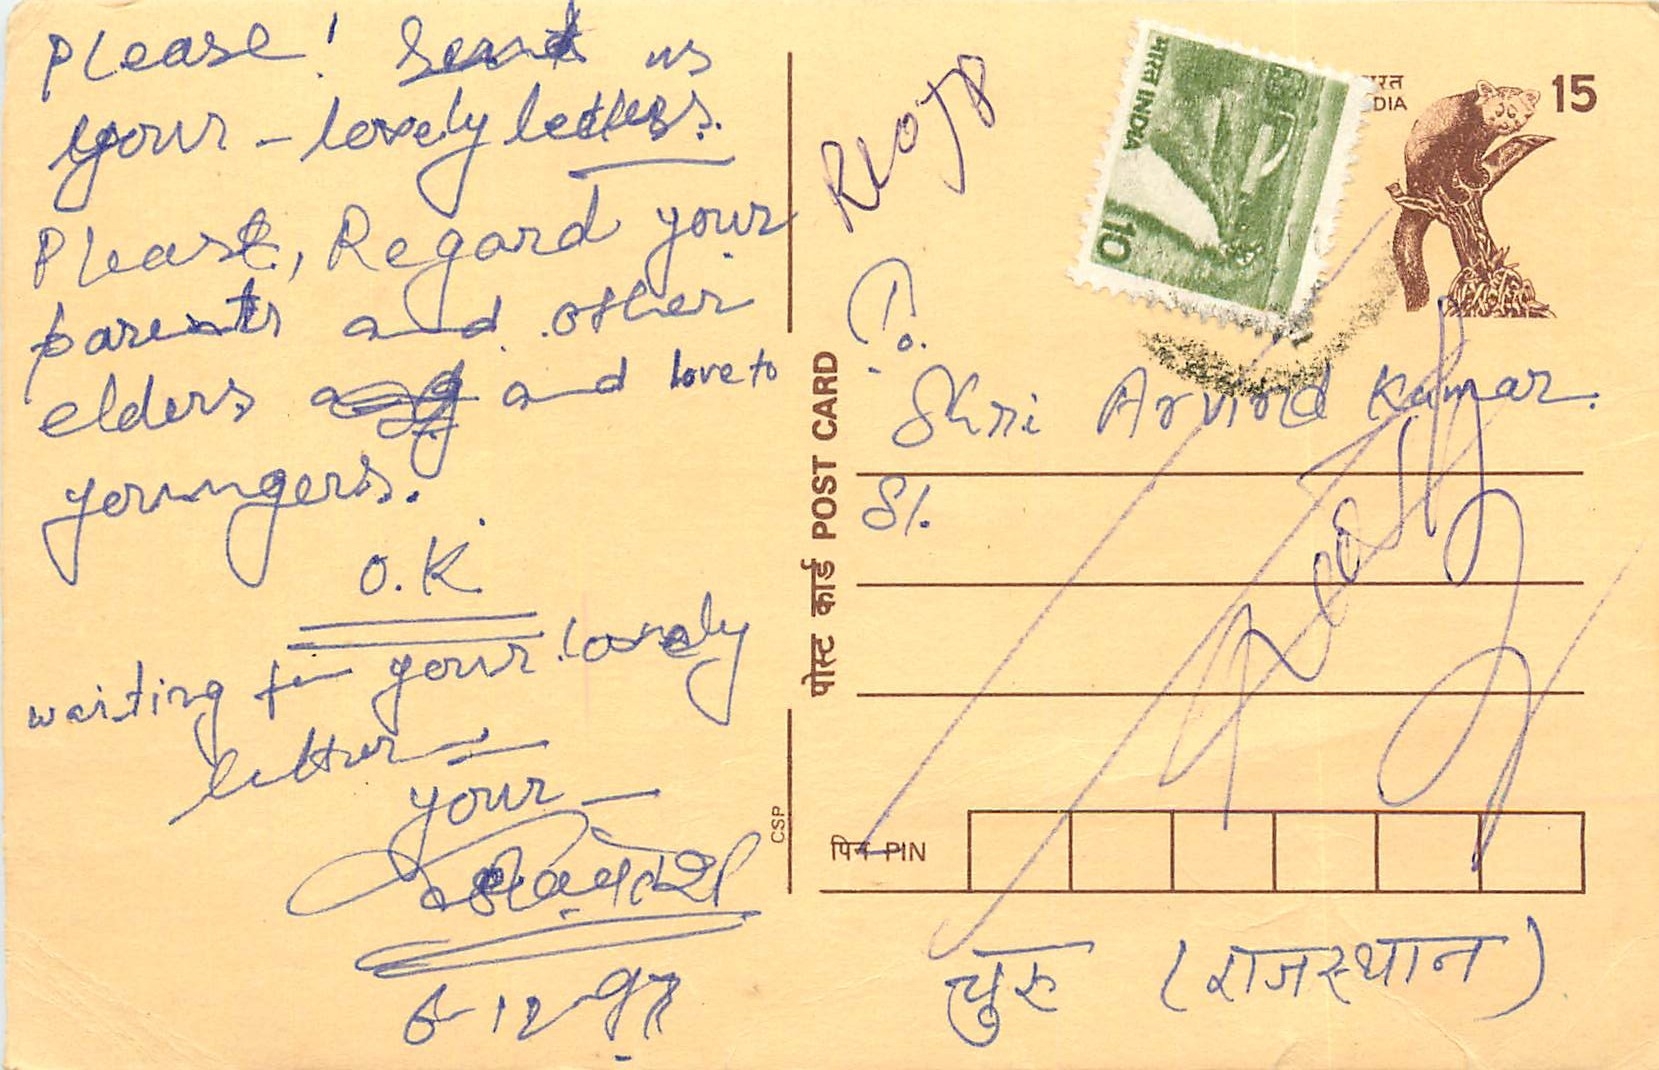 Please! Send us
your - lovely letters.
Please, Regard your
parents and other
elders and love to
youngers.
O.K.
waiting for your lovely
letter
your —
6-12-97
भारत INDIA
10
भारत
INDIA
15
To.
Shri Arvind Kumar.
S/.
पोस्ट कार्ड POST CARD
CSP
पिन PIN
चुरू (राजस्थान)